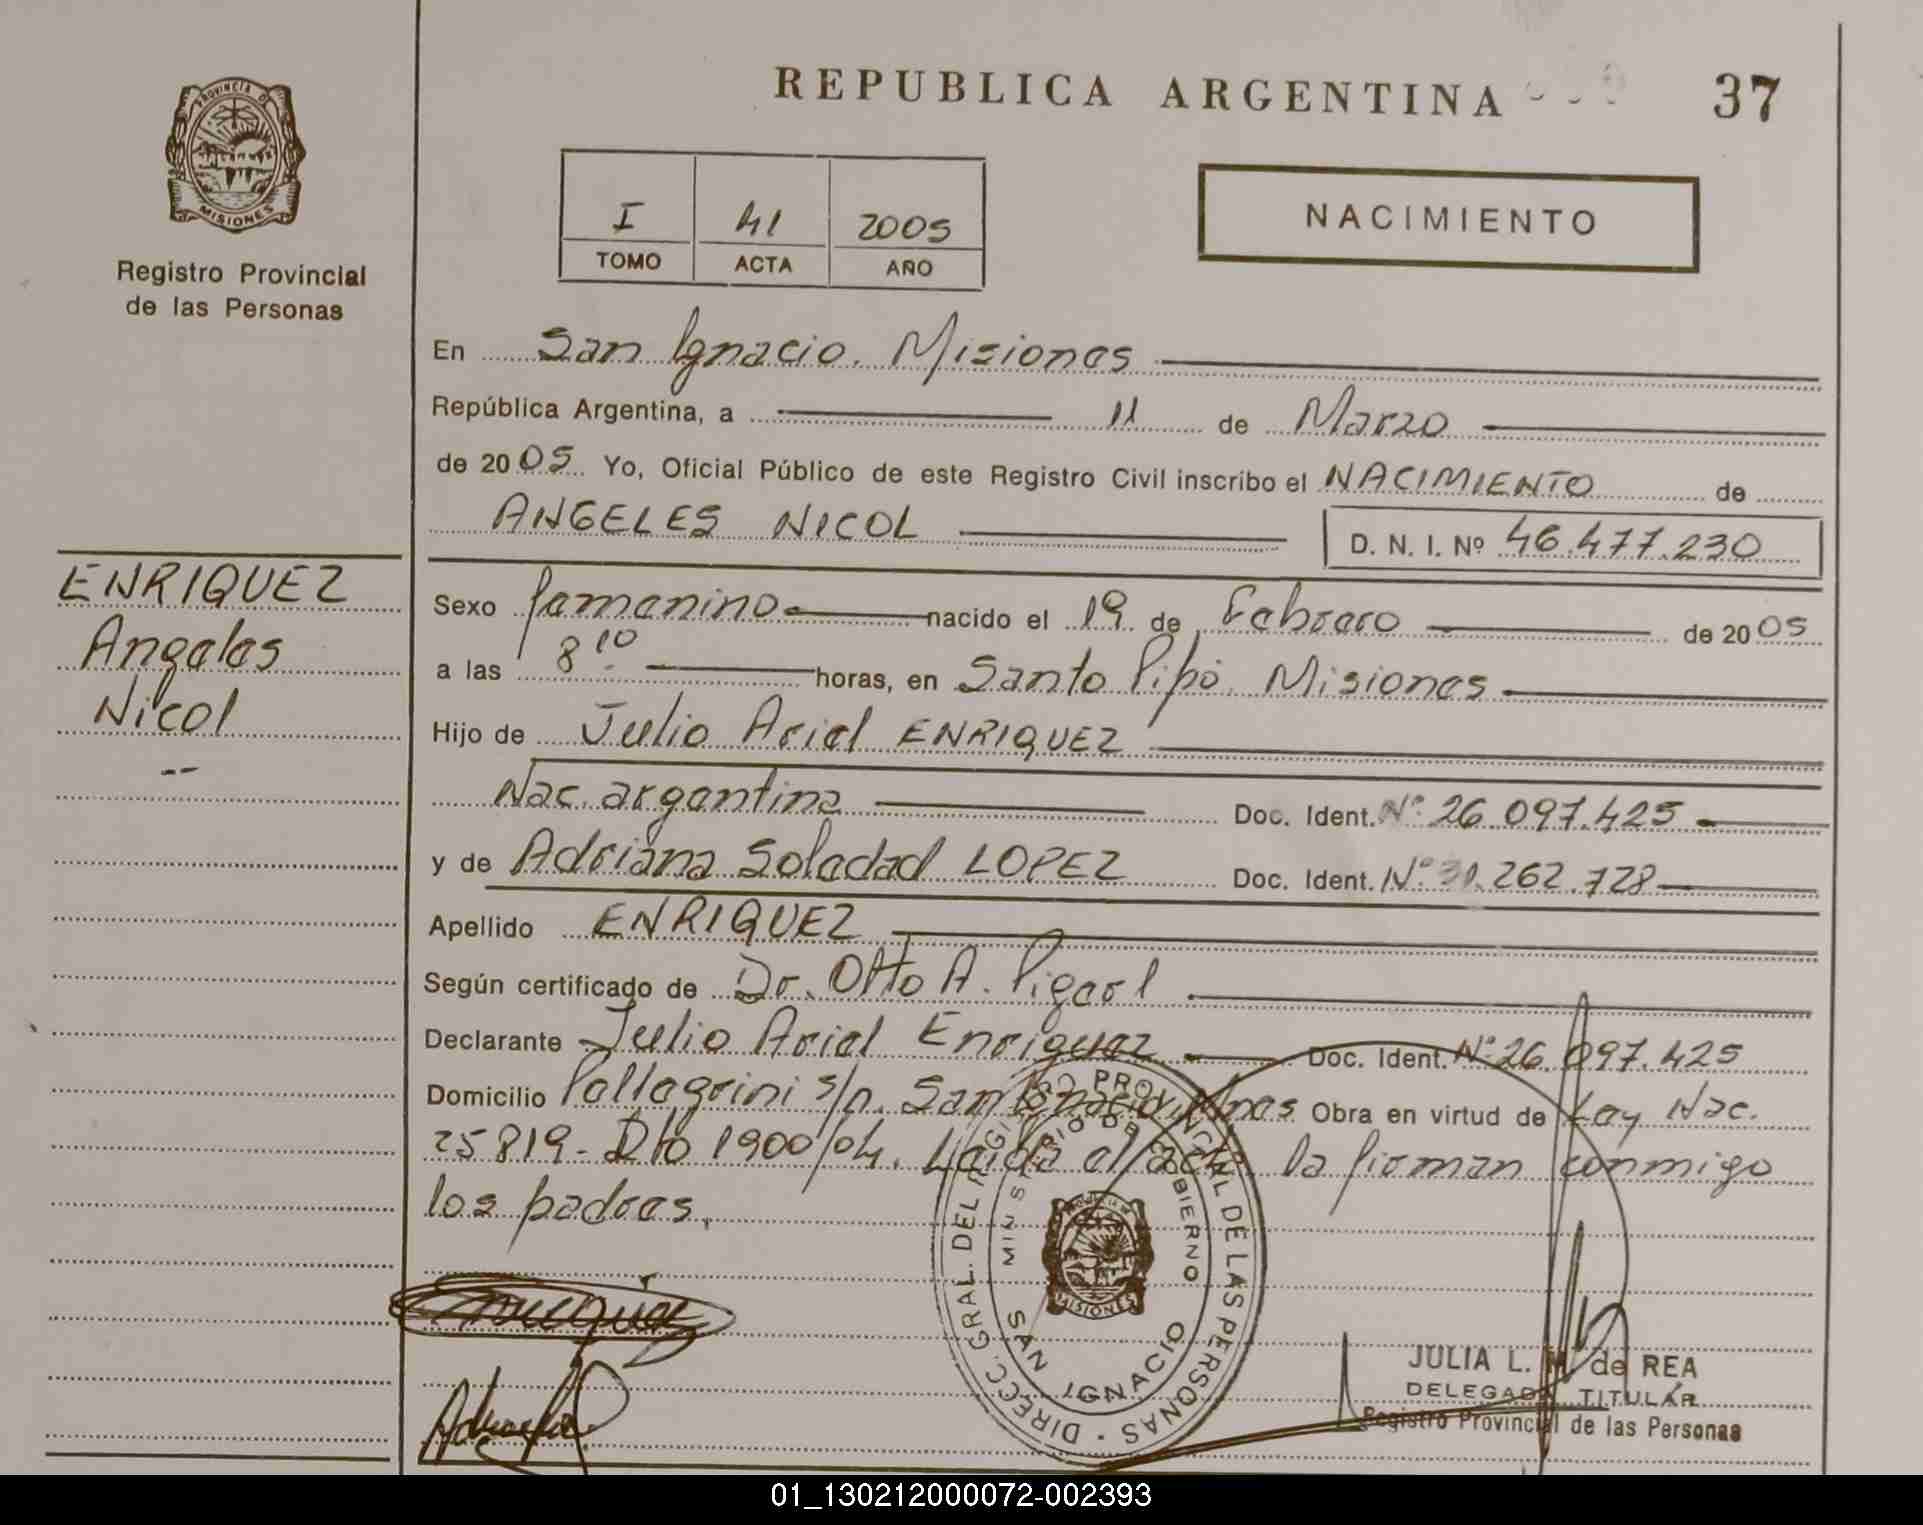 REPUBLICA ARGENTINA
37
PROVINCIA DE
MISIONES
Registro Provincial
de las Personas
I 41 2005
TOMO ACTA AÑO
NACIMIENTO
En San Ignacio. Misiones
República Argentina, a 11 de Marzo
de 2005 Yo, Oficial Público de este Registro Civil inscribo el NACIMIENTO de
ANGELES NICOL D. N. I. Nº 46.477.230
ENRIQUEZ
Angeles
Nicol
--
Sexo femenino nacido el 19 de Febrero de 2005
a las 8 10 horas, en Santo Pipó. Misiones
Hijo de Julio Ariel ENRIQUEZ
Nac. argentina Doc. Ident. Nº 26.097.425
y de Adriana Soledad LOPEZ Doc. Ident. Nº .262.728
Apellido ENRIQUEZ
Según certificado de Dr. Otto A.
Declarante Julio Ariel Enriquez Doc. Ident. Nº 26.097.425
Domicilio Pellegrini s/n. San Ignacio. Mnes Obra en virtud de Ley Nac.
25819- Dto 1900/04. Leída el acta, la firman conmigo
los padres.
DIRECC. GRAL. DEL REGISTRO PROVINCIAL DE LAS PERSONAS
MINISTERIO DE GOBIERNO
MISIONES
SAN IGNACIO
Enriquez
JULIA L. de REA
DELEGADA TITULAR
Registro Provincial de las Personas
01_130212000072-002393